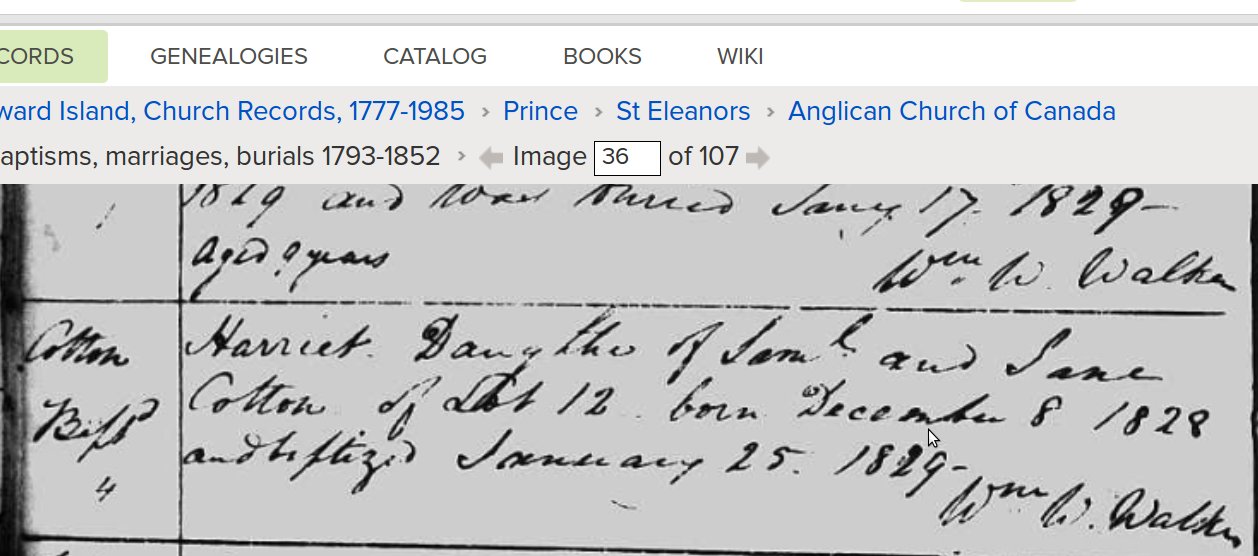 CORDS GENEALOGIES CATALOG BOOKS WIKI
ward Island, Church Records, 1777-1985 > Prince > St Eleanors > Anglican Church of Canada
aptisms, marriages, burials 1793-1852 > Image 36 of 107
1829 and was buried Jany 17. 1829-
Aged 9 years
Wm. W. Walker
Cotton
Harriet. Daughter of Saml. and Jane
Cotton of Lot 12. born December 8 1828
Bapd
and baptized January 25. 1829-
4
Wm W. Walker